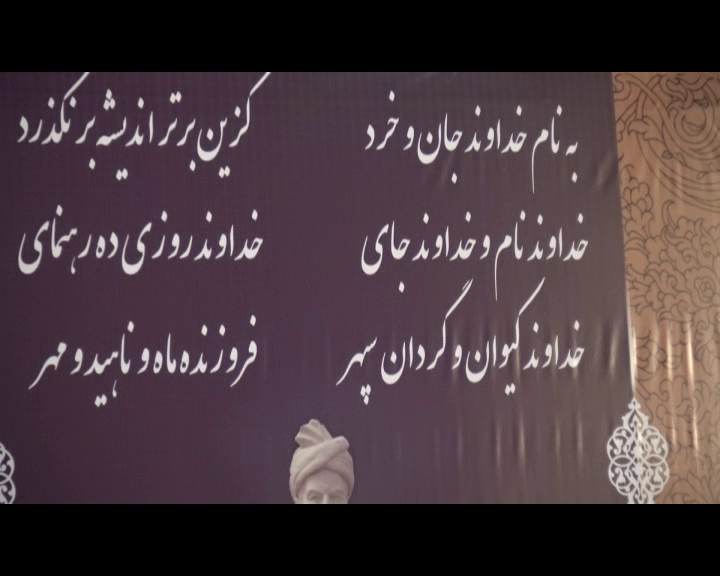 به نام خداوند جان و خرد کزین برتر اندیشه بر نگذرد
خداوند نام و خداوند جای خداوند روزی ده رهنمای
خداوند کیوان و گردان سپهر فروزنده ماه و ناهید و مهر